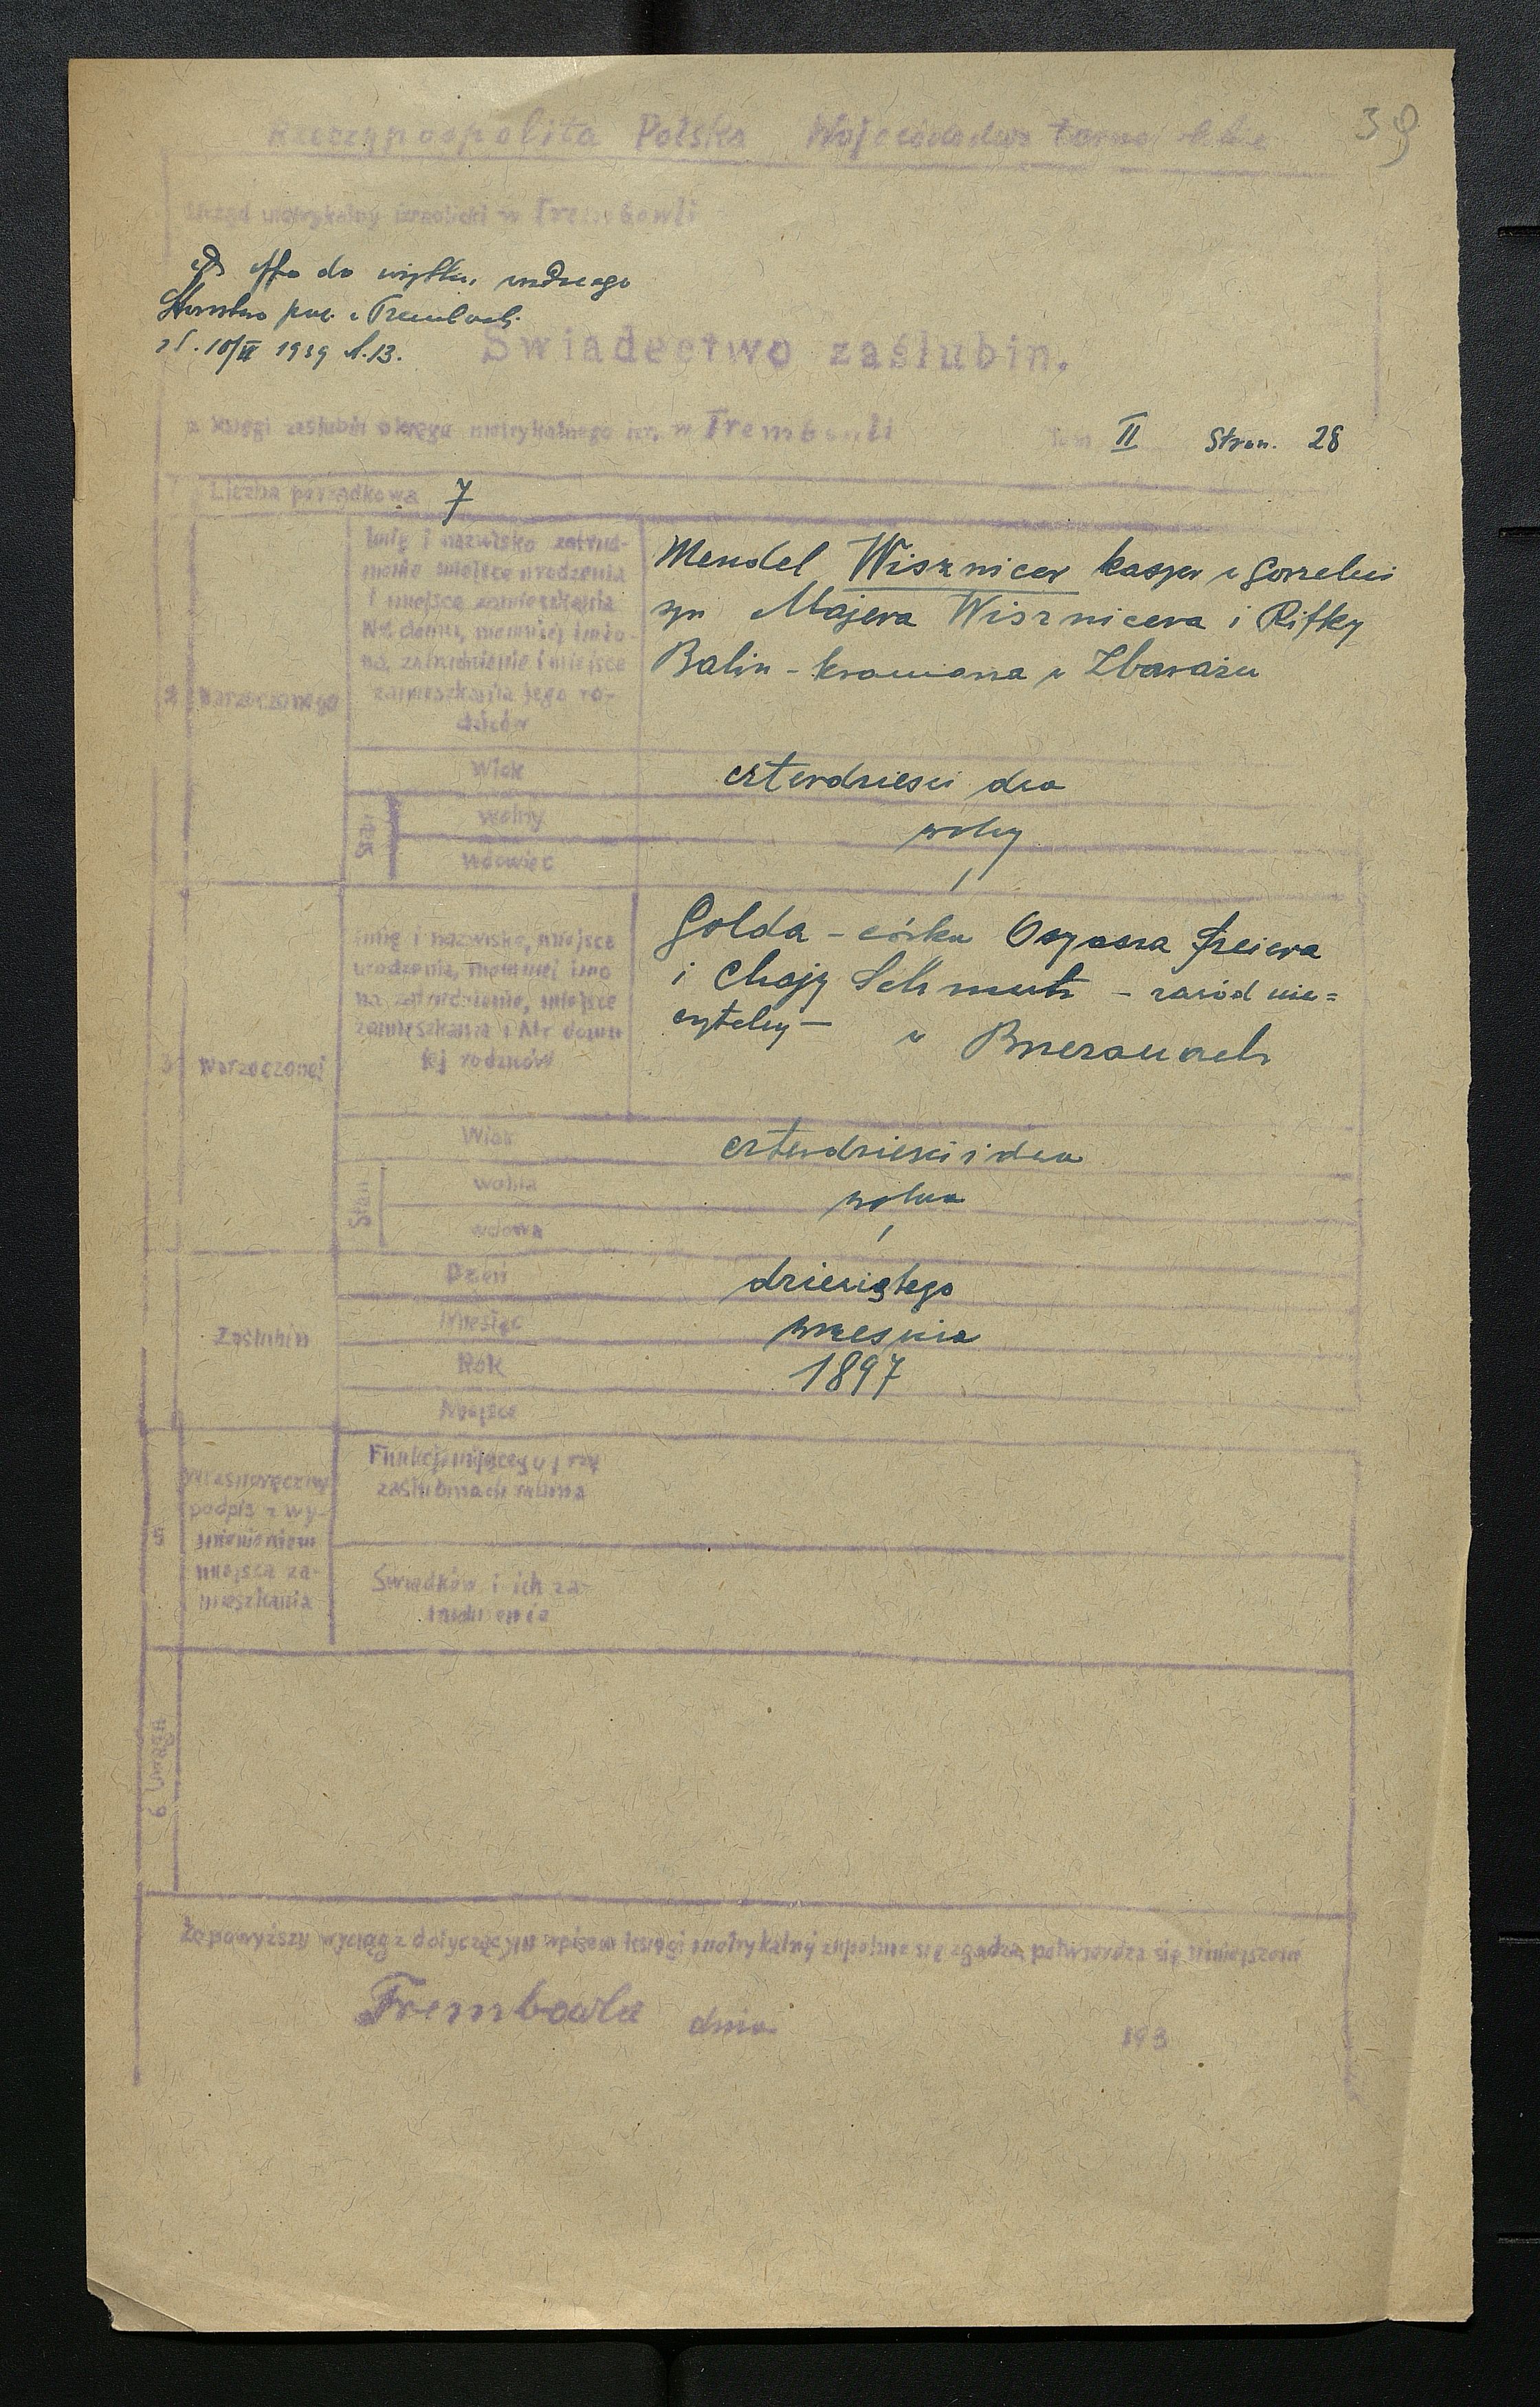 39
Rzeczypospolita Polska Województwo
Urząd metrykalny izraelicki w Trembowli
do użytku
1939 l. 13.
Świadectwo zaślubin.
z księgi zaślubin okręgu metrykalnego izr. w Trembowli Tom II Stron. 28
Liczba porządkowa 7
2 Narzeczonego
Imię i nazwisko zatrud-
nienie miejsce urodzenia
i miejsce zamieszkania
Nr. domu, niemniej imio-
na, zatrudnienie i miejsce
zamieszkania jego ro-
dziców
Mendel Wisznicer kasjer w Gorzelni
syn Majera Wisznicera i Rifky
Balin - kramarza w Zbarażu
Wiek czterdzieści dwa
Stan
wolny wolny
wdowiec
3 Narzeczonej
Imię i nazwisko, miejsce
urodzenia, niemniej imio
na zatrudnienie, miejsce
zamieszkania i Nr domu
jej rodziców
Golda - córka Osyasza Freiera
i Chajy Schmutz - zawód nie=
czytelny - w Brzeżanach
Wiek czterdzieści i dwa
Stan
wolna wolna
wdowa
Zaślubin
Dzień dziewiątego
Miesiąc września
Rok 1897
Miejsce
5 Własnoręczny
podpis z wy-
mienieniem
miejsca za-
mieszkania
Funkcjonującego przy
zaślubinach rabina
Świadków i ich za-
trudnienie
6 Uwaga
Że powyższy wyciąg z dotyczącym wpisem księgi metrykalnej zupełnie się zgadza, potwierdza się niniejszem
Trembowla dnia 193